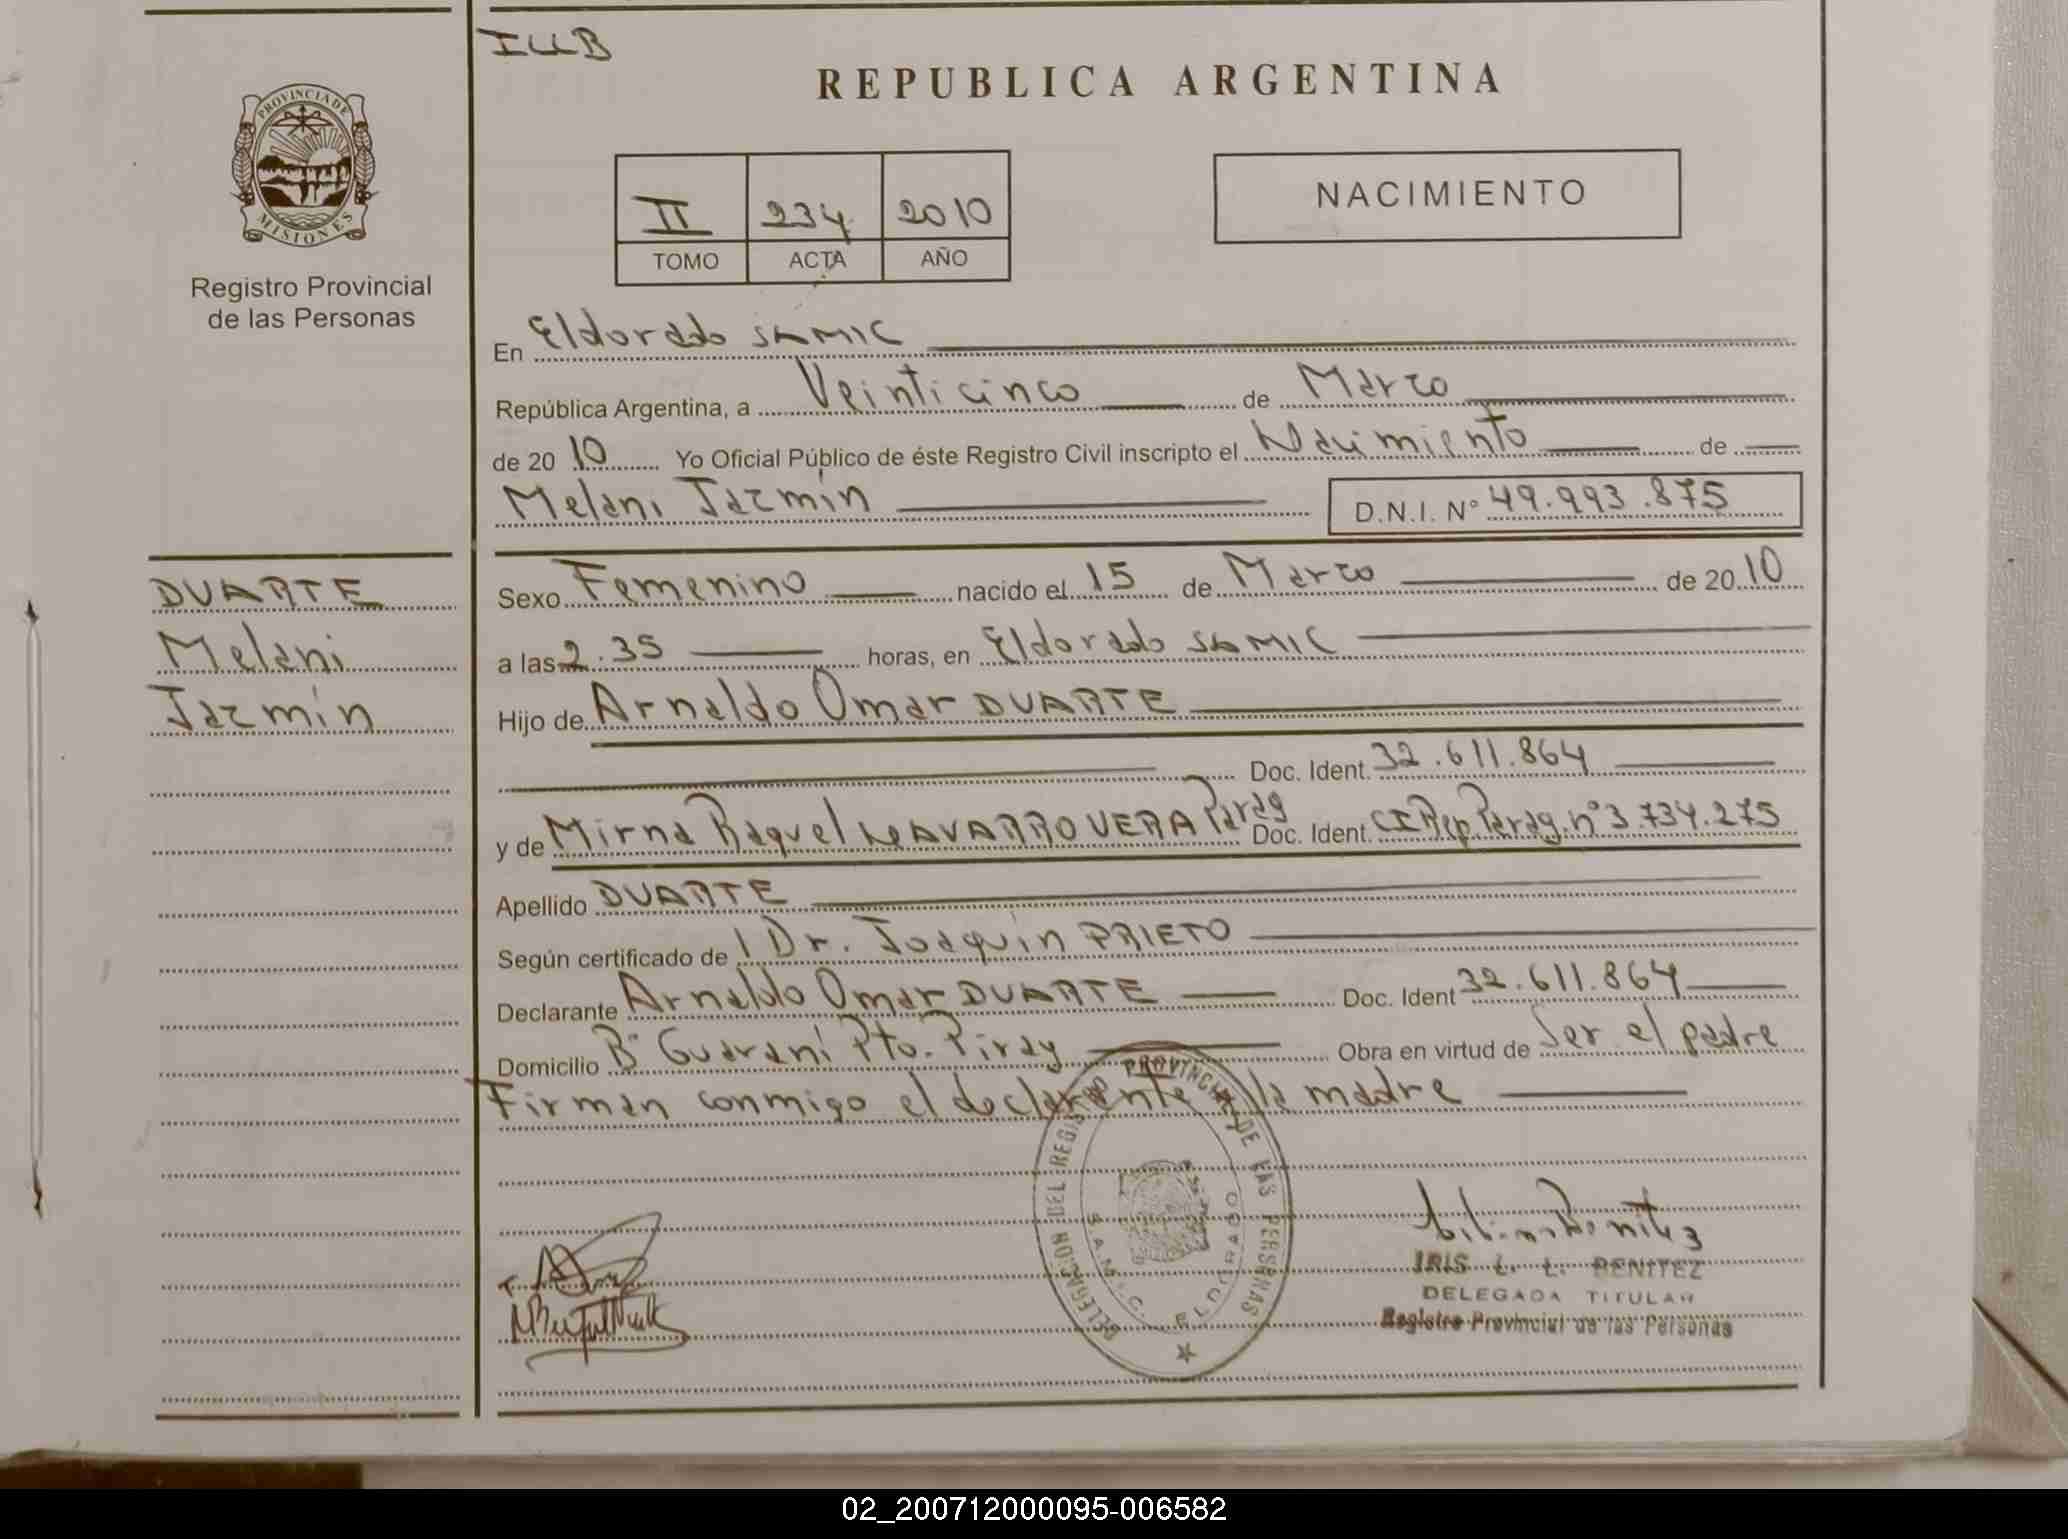 ILLB
REPUBLICA ARGENTINA
PROVINCIA DE
MISIONES
Registro Provincial
de las Personas
II 234 2010
TOMO ACTA AÑO
NACIMIENTO
En Eldorado SAMIC
República Argentina, a Veinticinco de Marzo
de 20 10 Yo Oficial Público de éste Registro Civil inscripto el Nacimiento de
Melani Jazmín D.N.I. Nº 49.993.875
DUARTE
Melani
Jazmín
Sexo Femenino nacido el 15 de Marzo de 20 10
a las 2.35 horas, en Eldorado SAMIC
Hijo de Arnaldo Omar DUARTE
Doc. Ident. 32.611.864
y de Mirna Raquel NAVARRO VERA Parag Doc. Ident. CI Rep Parag. nº 3.734.275
Apellido DUARTE
Según certificado de l Dr. Joaquín PRIETO
Declarante Arnaldo Omar DUARTE Doc. Ident 32.611.864
Domicilio Bº Guaraní Pto. Piray Obra en virtud de Ser el padre
Firman conmigo el declarante y la madre
DELEGACION DEL REGISTRO PROVINCIAL DE LAS PERSONAS
S.A.M.I.C. ELDORADO
IRIS L. L. BENITEZ
DELEGADA TITULAR
Registro Provincial de las Personas
02_200712000095-006582